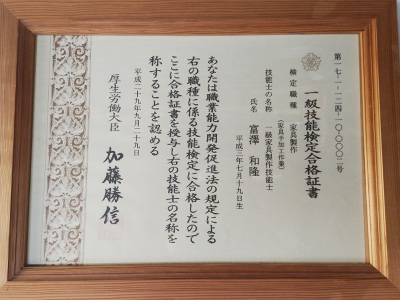 第一七-一-一二四-一〇-〇〇〇二号
一級技能検定合格証書
検定職種 家具製作
(家具手加工作業)
技能士の名称 一級家具製作技能士
氏名 富澤 和隆
平成三年七月十九日生
あなたは職業能力開発促進法の規定による
右の職種に係る技能検定に合格したので
ここに合格証書を授与し右の技能士の名称を
称することを認める
平成二十九年九月二十九日
厚生労働大臣 加藤勝信